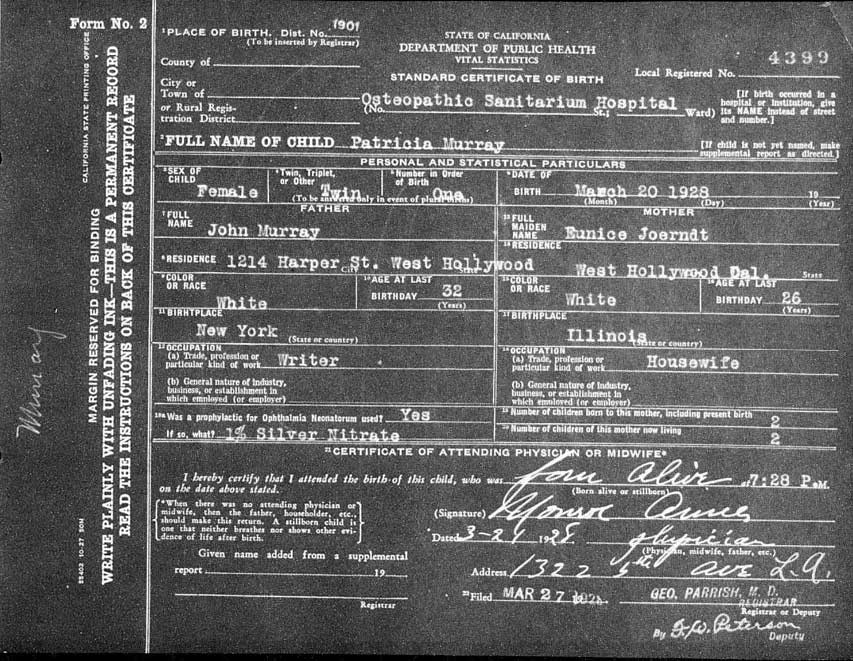 Form No. 2
1901
¹PLACE OF BIRTH. Dist. No.
(To be inserted by Registrar)
County of
City or
Town of
or Rural Regis-
tration District
STATE OF CALIFORNIA
DEPARTMENT OF PUBLIC HEALTH
VITAL STATISTICS
STANDARD CERTIFICATE OF BIRTH
Local Registered No. 4399
Osteopathic Sanitarium Hospital
(No. St.; Ward)
[If birth occurred in a
hospital or institution, give
its NAME instead of street
and number.]
²FULL NAME OF CHILD Patricia Murray
[If child is not yet named, make
supplemental report as directed.]
PERSONAL AND STATISTICAL PARTICULARS
³SEX OF
CHILD Female
⁴Twin, Triplet,
or Other Twin
⁵Number in Order
of Birth One
(To be answered only in event of plural births)
⁶DATE OF
BIRTH March 20 1928 19
(Month) (Day) (Year)
FATHER
MOTHER
⁷FULL
NAME John Murray
¹³FULL
MAIDEN
NAME Eunice Joerndt
⁸RESIDENCE 1214 Harper St. West Hollywood
City State
¹⁴RESIDENCE
West Hollywood Cal.
State
⁹COLOR
OR RACE White
¹⁰AGE AT LAST
BIRTHDAY 32
(Years)
¹⁵COLOR
OR RACE White
¹⁶AGE AT LAST
BIRTHDAY 26
(Years)
¹¹BIRTHPLACE
New York
(State or country)
¹⁷BIRTHPLACE
Illinois
(State or country)
¹²OCCUPATION
(a) Trade, profession or
particular kind of work Writer
(b) General nature of industry,
business, or establishment in
which employed (or employer)
¹⁸OCCUPATION
(a) Trade, profession or
particular kind of work Housewife
(b) General nature of industry,
business, or establishment in
which employed (or employer)
Was a prophylactic for Ophthalmia Neonatorum used? Yes
If so, what? 1% Silver Nitrate
¹⁹Number of children born to this mother, including present birth 2
²⁰Number of children of this mother now living 2
²¹CERTIFICATE OF ATTENDING PHYSICIAN OR MIDWIFE*
I hereby certify that I attended the birth of this child, who was born Alive at 7:28 P.M.
(Born alive or stillborn)
on the date above stated.
*When there was no attending physician or
midwife, then the father, householder, etc.,
should make this return. A stillborn child is
one that neither breathes nor shows other evi-
dence of life after birth.
(Signature)
Dated 3-24 1928. physician
(Physician, midwife, father, etc.)
Given name added from a supplemental
report 19
Registrar
Address 1322 5th ave L.A.
²²Filed MAR 27 1928
GEO. PARRISH, M. D.
REGISTRAR
Registrar or Deputy
By F.W. Peterson
Deputy
Murray
MARGIN RESERVED FOR BINDING
WRITE PLAINLY WITH UNFADING INK—THIS IS A PERMANENT RECORD
READ THE INSTRUCTIONS ON BACK OF THIS CERTIFICATE
CALIFORNIA STATE PRINTING OFFICE